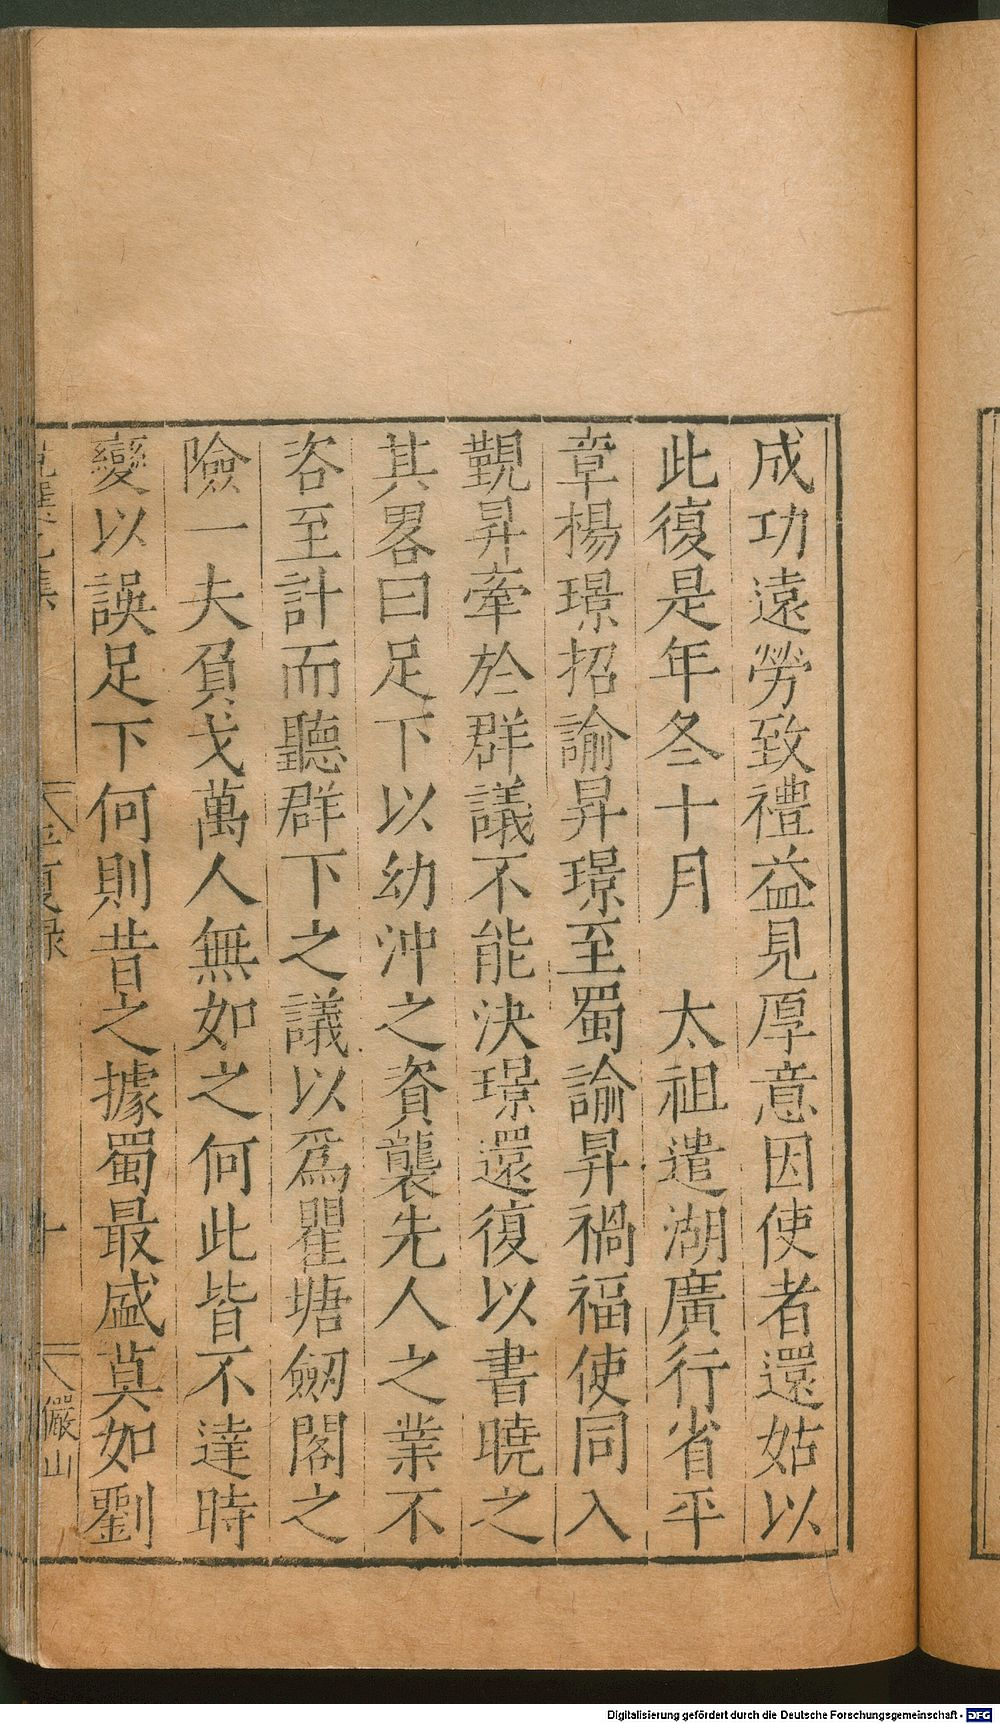 成功遠勞致禮益見厚意因使者還姑以
此復是年冬十月　太祖遣湖廣行省平
章楊璟招諭昇璟至蜀諭昇禍福使同入
覲昇牽於群議不能決璟還復以書曉之
其畧曰足下以幼沖之資襲先人之業不
咨至計而聽群下之議以爲瞿塘劒閣之
險一夫負戈萬人無如之何此皆不達時
變以誤足下何則昔之據蜀最盛莫如劉
平夏錄
十
儼山
Digitalisierung gefördert durch die Deutsche Forschungsgemeinschaft - DFG